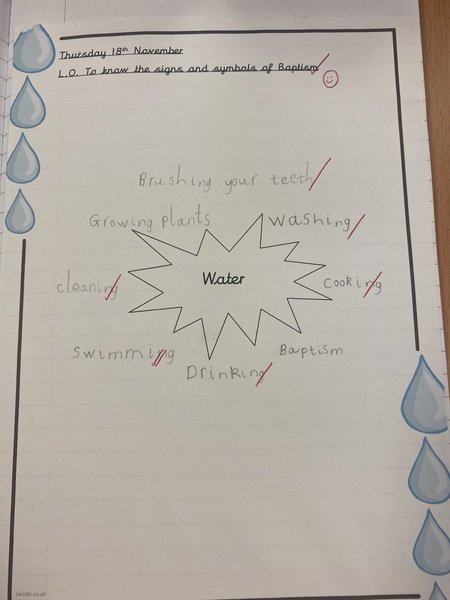 Thursday 18th November
L.O. To know the signs and symbols of Baptism
Brushing your teeth
Growing plants
Washing
cleaning
Water
Cooking
Swimming
Drinking
Baptism
twinkl.co.uk